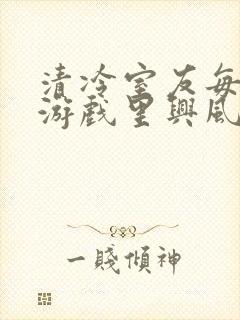 清冷室友每
游戲里興風
一賤傾神